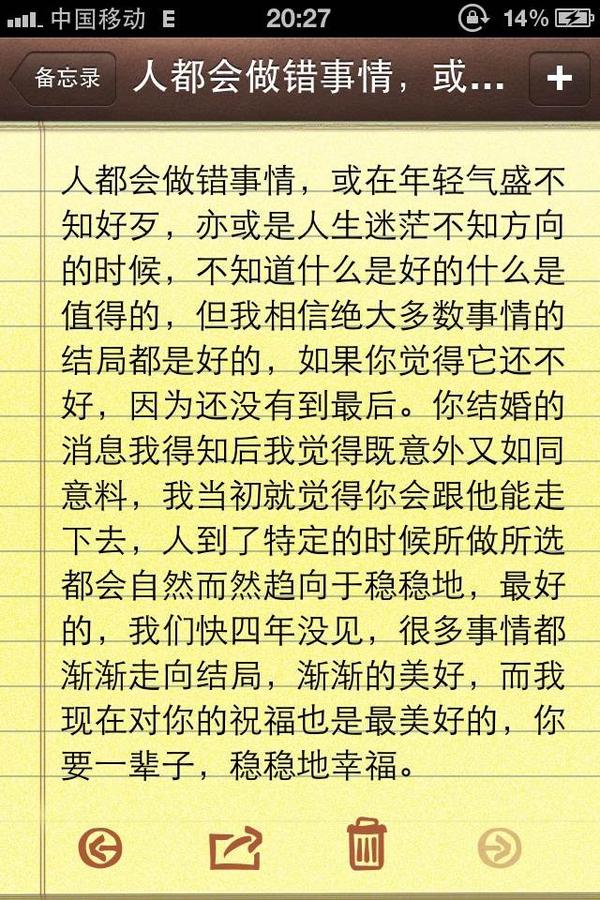 中国移动 E 20:27 14%
备忘录 人都会做错事情，或... +
人都会做错事情，或在年轻气盛不
知好歹，亦或是人生迷茫不知方向
的时候，不知道什么是好的什么是
值得的，但我相信绝大多数事情的
结局都是好的，如果你觉得它还不
好，因为还没有到最后。你结婚的
消息我得知后我觉得既意外又如同
意料，我当初就觉得你会跟他能走
下去，人到了特定的时候所做所选
都会自然而然趋向于稳稳地，最好
的，我们快四年没见，很多事情都
渐渐走向结局，渐渐的美好，而我
现在对你的祝福也是最美好的，你
要一辈子，稳稳地幸福。